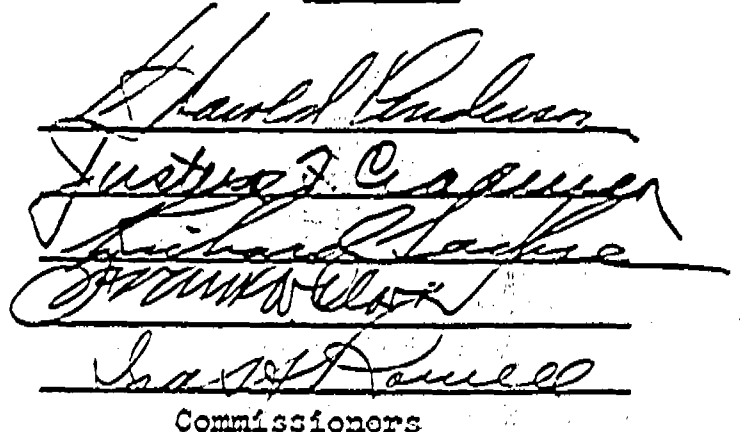 Harold Anderson
Justus F. Craemer
Richard Sachse
Frank W Clark
Ira H Rowell
Commissioners